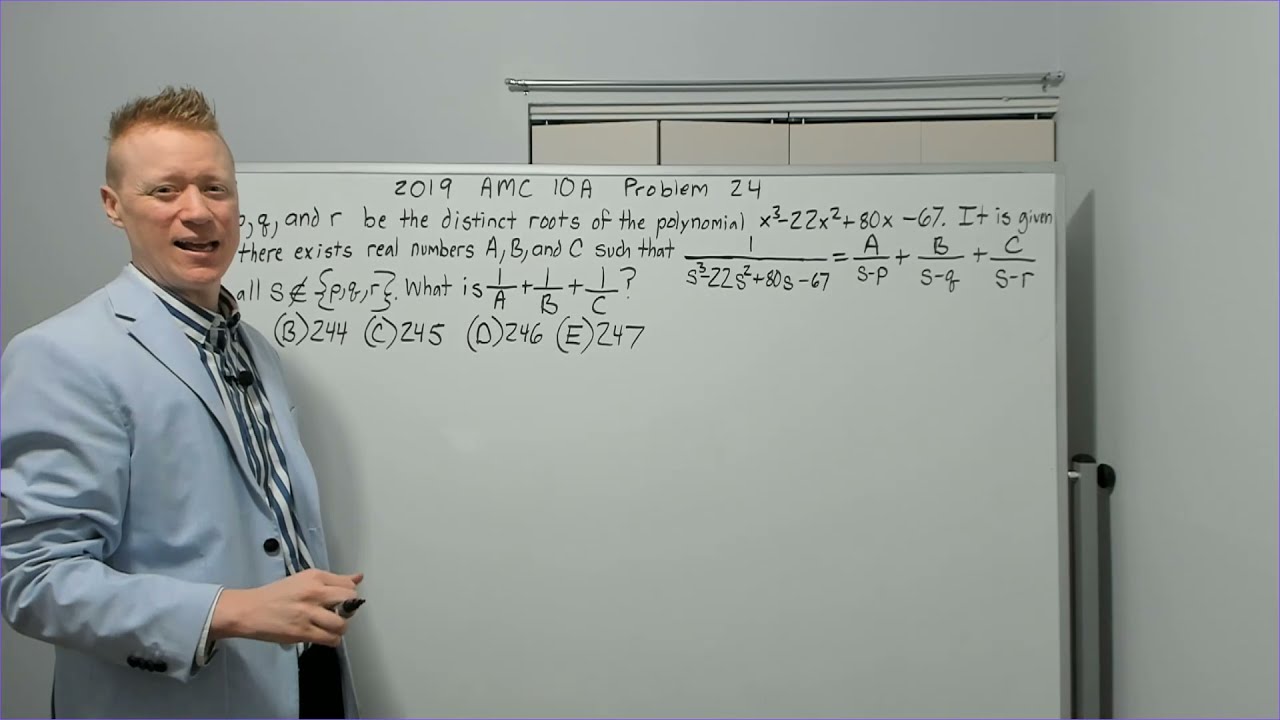 2019 AMC 10A Problem 24
q, and r be the distinct roots of the polynomial x³-22x²+80x-67. It is given
there exists real numbers A, B, and C such that 1/(s³-22s²+80s-67) = A/(s-p) + B/(s-q) + C/(s-r)
all s∉{p,q,r}. What is 1/A + 1/B + 1/C?
(B)244 (C)245 (D)246 (E)247